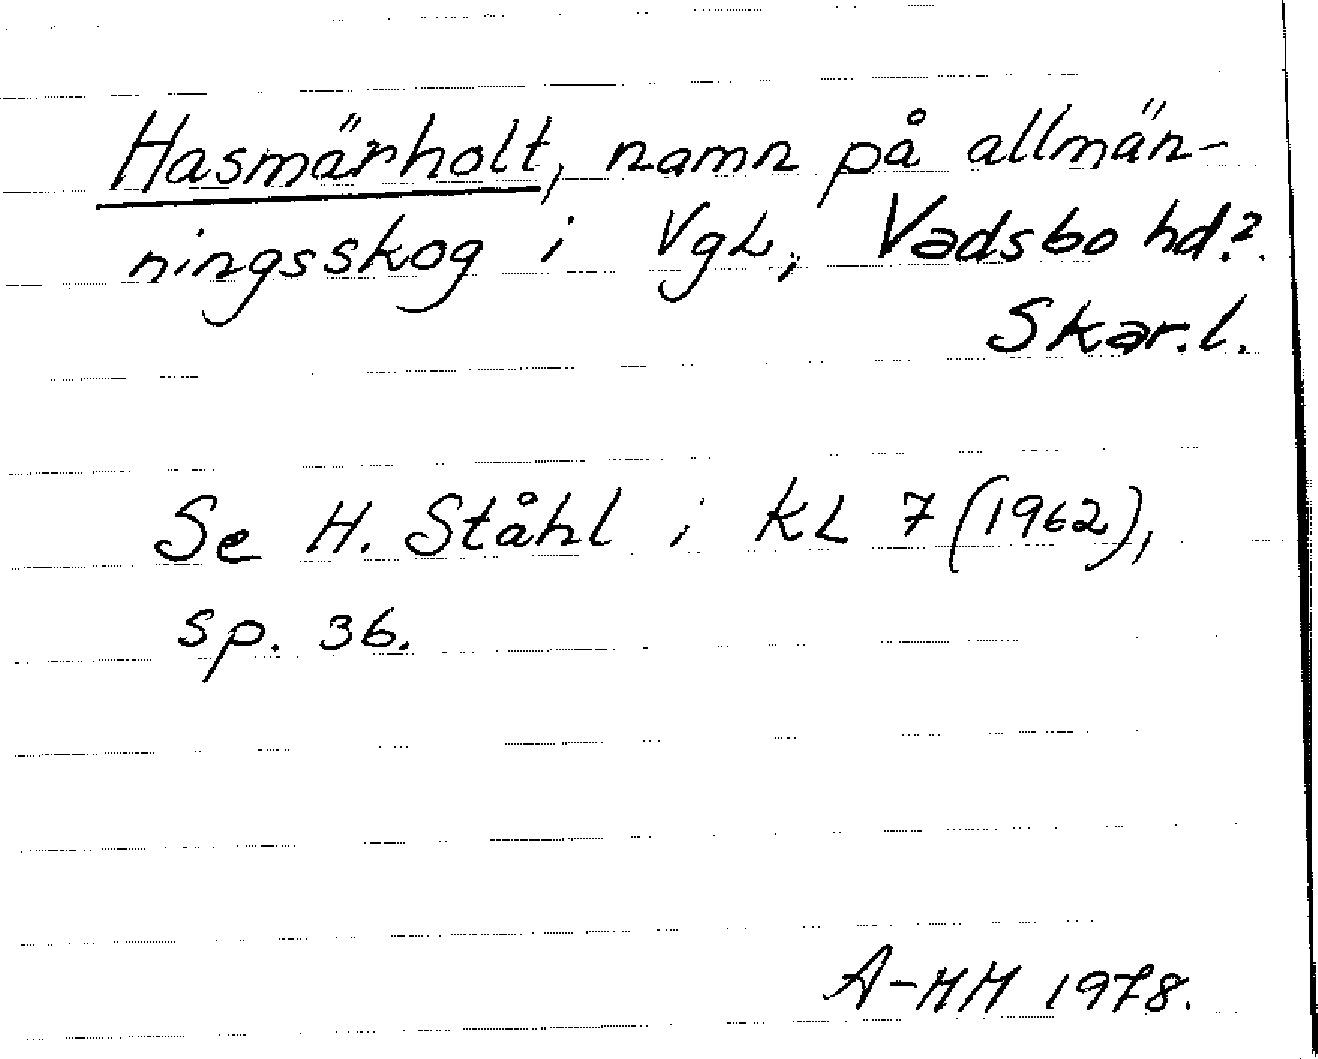 Hasmärholt, namn på allmän-
ningsskog i VgL, Vadsbo hd?.
Skar.l.
Se H. Ståhl i KL 7 (1962),
sp. 36.
A-HH 1978.